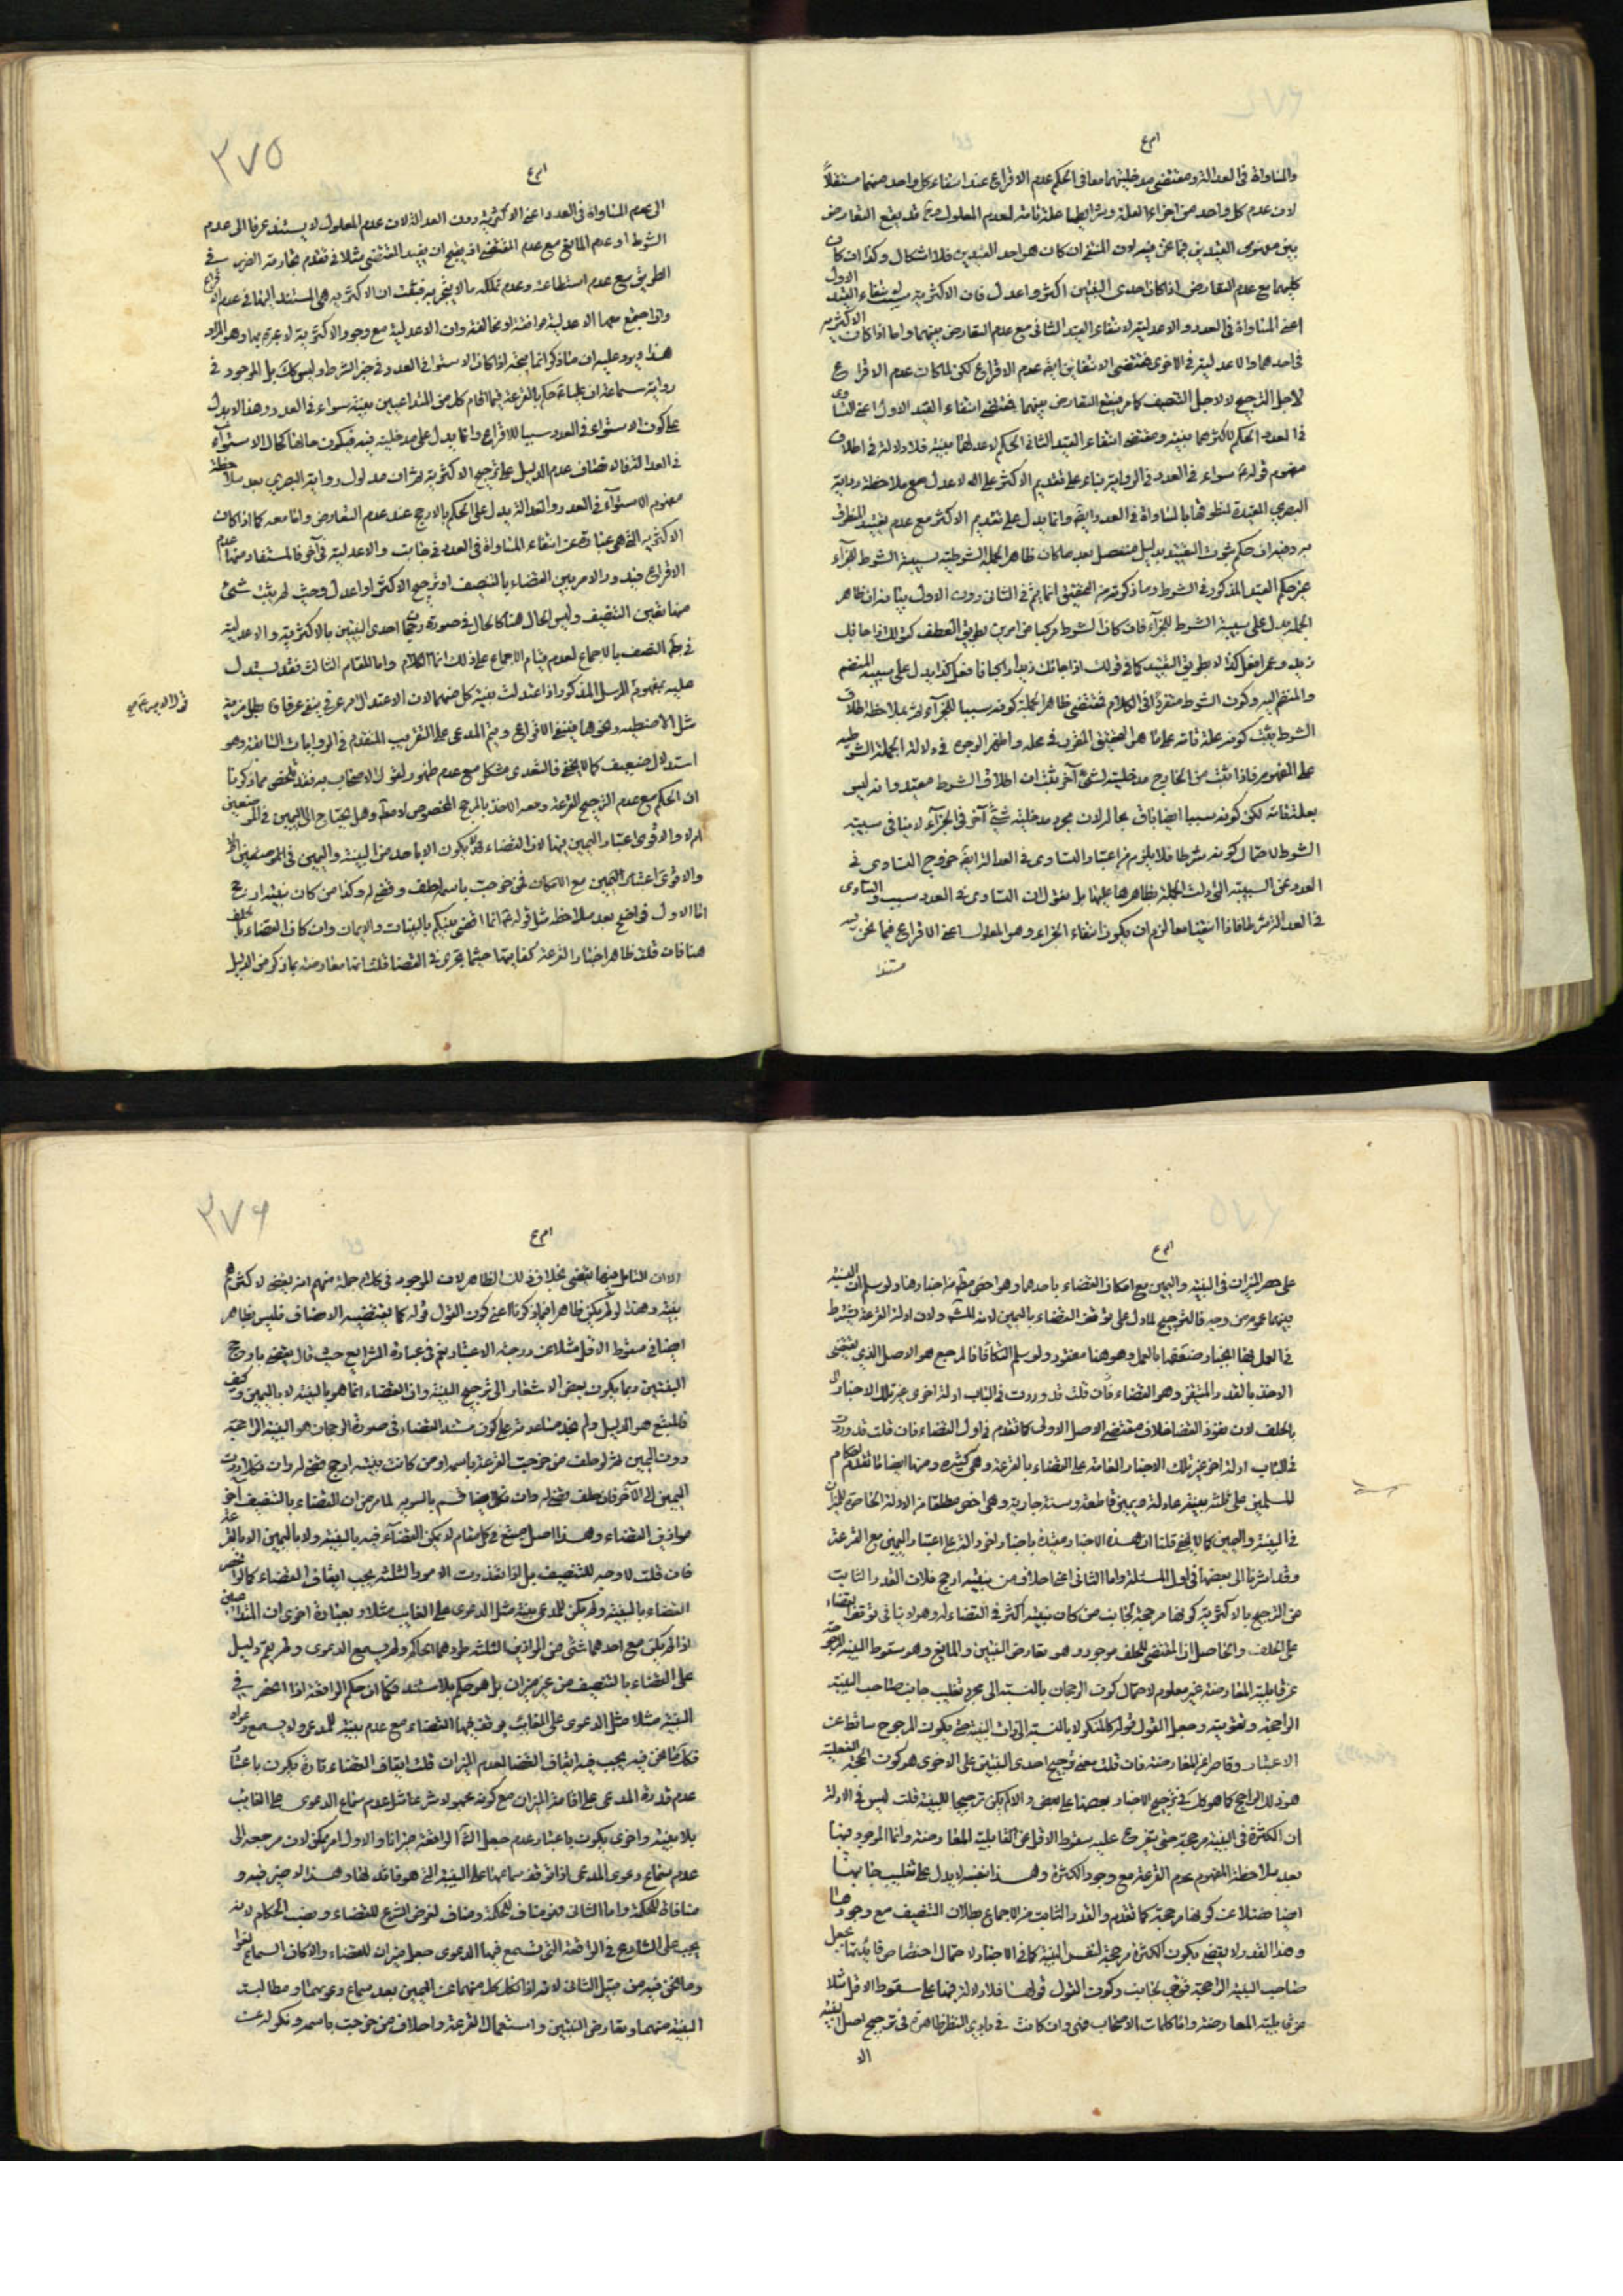 امرع
والمساواة فى العدالة ومقتضى مدخليتهما معا فى الحكم عدم الاقراع عند انتفاء كل واحد منهما مستقلاً
لان عدم كل واحد من اجزاء العلة وشرايطها علة تامة لعدم المعلول وح قد يقع التعارض
بين مفهومى القيدين فيما نحن فيه لان المنتفى ان كان هو احد القيدين فلا اشكال وكذا ان كان
كليهما مع عدم التعارض اذا كان احدى البينتين اكثر واعدل فان الاكثرية انتفاء القيد الاول
اعنى المساواة فى العدد والاعدلية لانتفاء القيد الثانى مع عدم التعارض بينهما واما اذا كانت الاكثرية
فى احدهما والاعدلية فى الاخرى فمقتضى الانتفائين ايضا عدم الاقراع لكن لما كان عدم الاقراع
لاجل الترجيح لا لاجل التنصيف كما مر فيقع التعارض بينهما فمقتضى انتفاء القيد الاول اعنى التساوى
فى العدد الحكم لاكثرهما بينة ومقتضى انتفاء القيد الثانى الحكم لاعدلهما بينة فلا دلالة فى اطلاق
مفهوم قوله سواء فى العدد فى الرواية بناء على تقديم الاكثر على الاعدل مع ملاحظة رواية
البصرى المقيدة لمنطوقها بالمساواة فى العدد ايضا وانما يدل على تقديم الاكثر مع عدم تقييد المنطوق
به وفيه ان حكم ثبوت التقييد بدليل منفصل بعد ما كان ظاهر الجملة الشرطية لسببية الشرط للجزاء
غير حكم القيد المذكور فى الشرط وما ذكرته من التحقيق انما يتم فى الثانى دون الاول بيانه ان ظاهر
الجملة يدل على سببية الشرط للجزاء فان كان الشرط مركبا من امرين بطريق العطف كقولك اذا جائك
زيد وعمرو افعل كذا لا بطريق التقييد كما فى قولك اذا جائك زيد راكبا فافعل كذا يدل على سببية المنضم
والمنضم اليه وكون الشرط منفردا فى الكلام فمقتضى ظاهر الجملة كونه سببا للجزاء ثم بملاحظة اطلاق
الشرط يثبت كونه علة تامة على ما هو التحقيق المقرر فى محله واظهر الوجوه فى دلالة الجملة الشرطية
على المفهوم فاذا ثبت من الخارج مدخلية لشئ آخر يثبت ان اطلاق الشرط مقيد وانه ليس
بعلة تامة لكن كونه سببا ايضا باق بحاله لان مجرد مدخلية شئ آخر فى الجزاء لا ينافى سببية
الشرط لاحتمال كونه شرطا فلا يلزم من اعتبار التساوى فى العدالة ايضا خروج التساوى فى
العدد عن السببية التى دلت الجملة بظاهرها عليها بل نقول ان التساوى فى العدد سبب والتساوى
فى العدالة شرط فاذا انتفيا معا لزم ان يكون انتفاء الجزاء وهو المعلول اعنى الاقراع فيما نحن فيه
مستندا
٣٧٥
امرع
الى عدم المساواة فى العدد اعنى الاكثرية دون العدالة لان عدم المعلول لا يستند عرفا الى عدم
الشرط او عدم المانع مع عدم المقتضى
الطريق مع عدم استطاعته وعدم تملكه ما لا يتجر به فثبت ان الاكثرية هى المستند اليها فى عدم الاقراع
واذا اجتمع معها الاعدلية موافقة او مخالفة وان الاعدلية مع وجود الاكثرية لا عبرة بها وهو المراد
هذا ويرد عليه ان ما ذكر انما يتجه اذا كان الاستواء فى العدد فى حيز الشرط وليس كك بل الموجود فى
رواية سماعة ان عليا حكم بالقرعة فيما اقام كل من المتداعيين بينة سواء فى العدد وهذا لا يدل
على كون الاستواء فى العدد سببا للاقراع وانما يدل على مدخلية فيه فيكون حالها كحال الاستواء
فى العدالة فالانصاف عدم الدليل على ترجيح الاكثرية ثم ان مدلول رواية البصرى بعد ملاحظة
مفهوم الاستواء فى العدد والعدالة يدل على الحكم بالارجح عند عدم التعارض واما معه كما اذا كان
الاكثرية التى هى عبارة عن انتفاء المساواة فى العدد فى جانب والاعدلية فى آخر فالمستفاد منها عدم
الاقراع فيدور الامر بين القضاء بالتنصيف او ترجيح الاكثر او اعدل وحيث لم يثبت شئ
منها تعين التنصيف وليس الحال هنا كالحال فى صورة رجحان احدى البينتين بالاكثرية والاعدلية
فى بطلان التنصيف بالاجماع لعدم قيام الاجماع على ذلك انما الكلام واما المقام الثالث فقد يستدل
عليه بمفهوم المرسل المذكور اذا اعتدلت بينة كل منهما لان الاعتدال امر عرفى ينتفى عرفا باى مزية
مثل الاضبطية ونحوها فينتفى الاقراع ويتم المدعى على التقريب المتقدم فى الروايات السابقة وهو
استدلال ضعيف كما لا يخفى فالتعدى مشكل مع عدم ظهور لقول الاصحاب به فقد تلخص مما ذكرنا
ان الحكم مع عدم الترجيح للقرعة ومعه الاخذ بالمرجح المخصوص لا مطلقا وهل يحتاج الى اليمين فى الموضعين
ام لا والاقوى اعتبار اليمين فيهما لان القضاء لا يكون الا باحد من البينة واليمين فى الموضعين
والاقوى اعتبار اليمين مع الامكان فمن خرجت باسمه احلف وقضى له وكذا من كان بينته ارجح
اما الاول فواضح بعد ملاحظة مثل قوله انما اقضى بينكم بالبينات والايمان وان كان القضاء بالحلف
هنا فان قلت ظاهر اخبار القرعة كفايتها حيثما تجرى فى القضاء قلت انها معارضة بما ذكر من الدليل
امرع
على حصر الميزان فى البينة واليمين مع امكان القضاء باحدهما وهو اخص مطلقا من اخبارها ولو سلم ان النسبة
بينهما عموم من وجه فالترجيح لما دل على توقف القضاء باليمين لانه المشهور ولان ادلة القرعة يشترط
فى العمل بها انجبار ضعفها بالعمل وهو هنا مفقود ولو سلم التكافؤ فالمرجع هو الاصل الذى يقتضى
الاخذ بالقدر المتيقن وهو القضاء فان قلت قد وردت فى الباب ادلة اخرى غير تلك الاخبار
بالحلف لان نفوذ القضاء خلاف مقتضى الاصل الاولى كما تقدم فى اول القضاء فان قلت قد وردت
فى الباب ادلة اخر غير تلك الاخبار العامة على القضاء بالقرعة وهى كثيرة ومنها ايضا ما تقدم احكام
المسلمين على ثلثة بينة عادلة ويمين قاطعة وسنة جارية وهى اخص مطلقا من الادلة الحاصرة للميزان
فى البينة واليمين كما لا يخفى قلنا ان هذه الاخبار مقيدة باخبار اخر دالة على اعتبار اليمين مع القرعة
وقد اشرنا الى بعضها فى اول المسئلة واما الثانى اعنى احلاف من بينته ارجح فلان القدر الثابت
من الترجيح بالاكثرية كونها مرجحة لجانب من كان بينته اكثر فى القضاء له وهو لا ينافى توقف القضاء
على الحلف والحاصل ان المقتضى للحلف موجود وهو تعارض البينتين والمانع وهو سقوط البينة المرجوحة
عن قابلية المعارضة غير معلوم لاحتمال كون الرجحان بالنسبة الى مجرد تغليب جانب صاحب البينة
الراجحة وتقويته وجعل القول قوله كالمنكر لا بالنسبة الى ذات البينة حتى يكون المرجوح ساقطا عن
الاعتبار وقاصرا عن المعارضة فان قلت معنى ترجيح احدى البينتين على الاخرى هو كون الحجة الفعلية
هو ذلك الراجح كما هو كك فى ترجيح الاخبار بعضها على بعض والا لم يكن ترجيحا للبينة قلت ليس فى الادلة
ان الكثرة فى البينة مرجحة حتى يتفرع عليه سقوط الاقل عن القابلية للمعارضة وانما الموجود فيها
بعد ملاحظة المفهوم عدم القرعة مع وجود الكثرة وهذا بنفسه لا يدل على تغليب جانبها
ايضا فضلا عن كونها مرجحة كما تقدم والقدر الثابت من الاجماع بطلان التنصيف مع وجودها
وهذا القدر لا يقضى بكون الكثرة مرجحة لنفس البينة كما فى الاخبار لاحتمال اختصاص فائدتها بجعل
صاحب البينة الراجحة قوى الجانب وكون القول قوله فلا دلالة فيها على سقوط الاقل مثلا
عن قابلية المعارضة واما كلمات الاصحاب فهى وان كانت فى بادى النظر ظاهرة فى ترجيح اصل البينة
الا
٣٧٦
امرع
الا ان التامل فيها يقضى بخلاف ذلك الظاهر لان الموجود فى كلام جملة منهم انه يقضى لاكثرهم
بينة وهذا لو لم يكن ظاهرا فيما ذكرنا اعنى كون القول قوله كما يقتضيه الانصاف فليس بظاهر
ايضا فى سقوط الاقل مثلا عن درجة الاعتبار نعم فى عبارة الشرايع حيث قال يقضى بارجح
البينتين ربما يكون بعض الاشعار الى ترجيح البينة وان القضاء انما هو بالبينة لا باليمين وكيف كان
فالمتبع هو الدليل ولم نجد مساعدته على كون مستند القضاء فى صورة الرجحان هو البينة الراجحة
دون اليمين ثم لو حلف من خرجت القرعة باسمه او من كانت بينته ارجح قضى له وان نكل ردت
اليمين الى الآخر فان حلف قضى له وان نكل ايضا قسم بالسوية لما مر من ان القضاء بالتنصيف آخر
موازين القضاء وهذا اصل متبع فى كل مقام لا يمكن القضاء فيه بالبينة ولا باليمين الا بالقرعة
فان قلت لا وجه للتنصيف بل اذا تعذرت الامور الثلثة يجب ايقاف القضاء كما لو انحصر
القضاء بالبينة ولم يكن للمدعى بينة مثل الدعوى على الغايب مثلا وبعبارة اخرى ان المتداعيين
اذا لم يكن مع احدهما شئ من الموازين الثلثة طردهما الحاكم ولم يسمع الدعوى ولم يقم دليل
على القضاء بالتنصيف من غير ميزان بل هو حكم بلا مستند فكما ان حكم الواقعة اذا انحصر فى
البينة مثلا مثل الدعوى على الغائب يوقف فيها القضاء مع عدم بينة للمدعى ولا يسمع دعواه
فكك ما نحن فيه يجب فيه ايقاف القضاء لعدم الميزان قلت ايقاف القضاء تارة يكون باعتبار
عدم قدرة المدعى على اقامة الميزان مع كونه مجعولا شرعا مثل عدم سماع الدعوى على الغائب
بلا بينة واخرى يكون باعتبار عدم جعل الشارع للواقعة ميزانا والاول امر ممكن لان مرجعه الى
عدم سماع دعوى المدعى اذا توقف سماعها على البينة التى هو فاقد لها وهذا لا ضير فيه و
منافاة للحكمة واما الثانى فهو مناف للحكمة ومناف لغرض الشرع للقضاء ونصب الحكام لانه
يجب على الشارع فى الواقعة التى تسمع فيها الدعوى جعل ميزان للقضاء والا كان السماع لغوا
وما نحن فيه من قبيل الثانى لانه اذا نكل كل منهما عن اليمين بعد سماع دعويهما ومطالبة
البينة منهما وتعارض البينتين واستعمال القرعة واحلاف من خرجت باسمه ونكوله عن